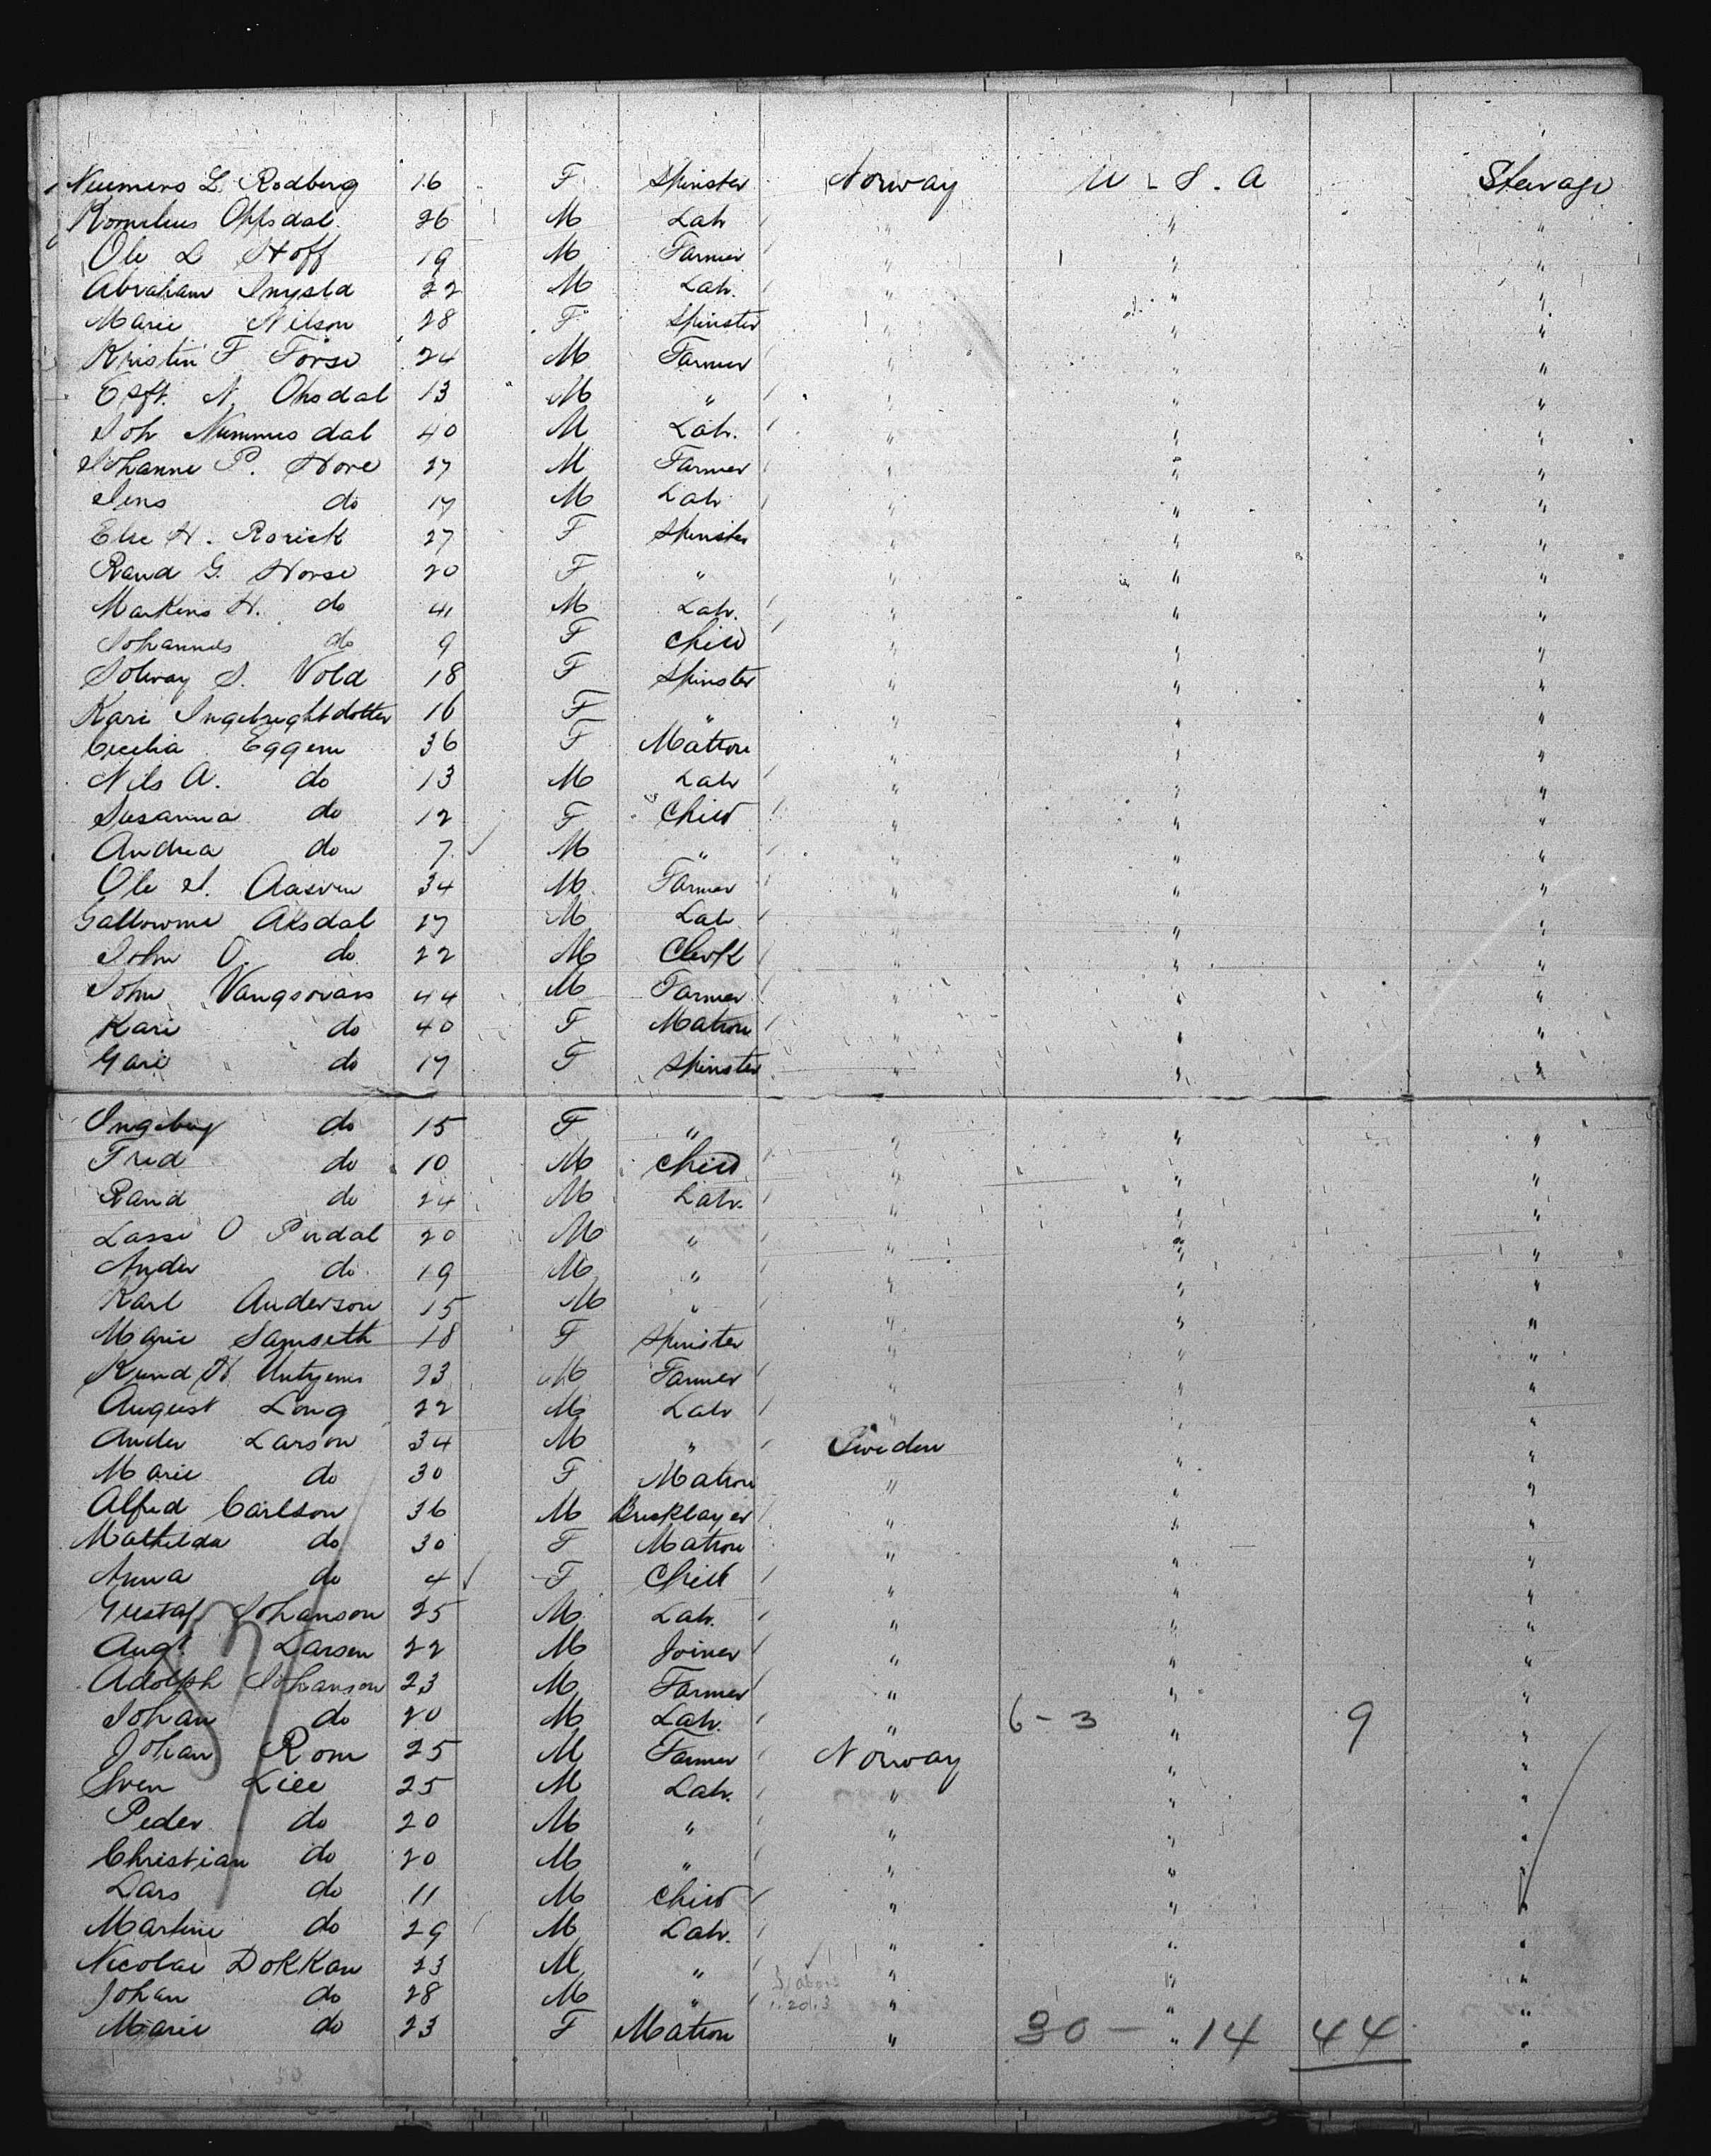 L. Rodberg 16 F Spinster Norway U-S.A Steerage
Oppsdal 26 M Lab " "
Ole L Hoff 19 M Farmer " " "
Abraham 22 M Lab. " " "
Marie Nilson 28 F Spinster " " "
Kristin F Forse 24 M Farmer " " "
N. Opsdal 13 M " " " "
Joh dal 40 M Lab. " " "
Johanne P. Hove 27 M Farmer " " "
Jens do 17 M Lab " " "
Else H. Rorick 27 F Spinster " " "
Rand G. Horse 20 F " " " "
Markins H. do 41 M Lab. " " "
Johannes do 9 F Child " " "
Solway S. Vold 18 F Spinster " " "
Kari Ingebrightdotter 16 F " " " "
Cecelia Eggem 36 F Matron " " "
Nils A. do 13 M Lab " " "
Susanna do 12 F Child " " "
Andrea do 7 ✓ M " " " "
Ole Aasven 34 M Farmer " " "
Aksdal 27 M Lab " " "
John O. do 22 M Clerk " " "
John 44 M Farmer " " "
Kari do 40 F Matron " " "
Gari do 17 F Spinster " " "
Ingeborg do 15 F " " " "
Fred do 10 M Child " " "
Rand do 24 M Lab. " " "
Lasse O Perdal 20 M " " " "
Ander do 19 M " " " "
Karl Anderson 15 M " " " "
Marie Samseth 18 F Spinster " " "
H 23 M Farmer " " "
August Long 22 M Lab " " "
Ander Larson 34 M " Sweden " "
Marie do 30 F Matron " " "
Alfred Carlson 36 M Bricklayer " " "
Mathilda do 30 F Matron " " "
Anna do 4 ✓ F Child " " "
Gustaf Johanson 25 M Lab. " " "
Augt Larsen 22 M Joiner " " "
Adolph Johanson 23 M Farmer " " "
Johan do 20 M Lab. " 6-3 " 9 "
Johan Rom 25 M Farmer Norway " "
Sven Lice 25 M Lab. " " "
Peder do 20 M " " " "
Christian do 20 M " " " "
Lars do 11 M Child " " "
Martine do 29 M Lab. " " "
Nicolai Dokkan 23 M " " " "
Johan do 28 M " " " "
Marie do 23 F Matron " 30 - " 14 44 "